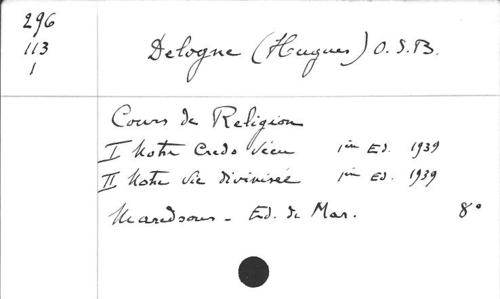 296
113
1
Delogne (Hugues) O.S.B.
Cours de Religion
I Notre Credo Vécu 1ère Ed. 1939
II Notre Vie divinisée 1ère Ed. 1939
Maredsous - Ed. de Mar. 8°